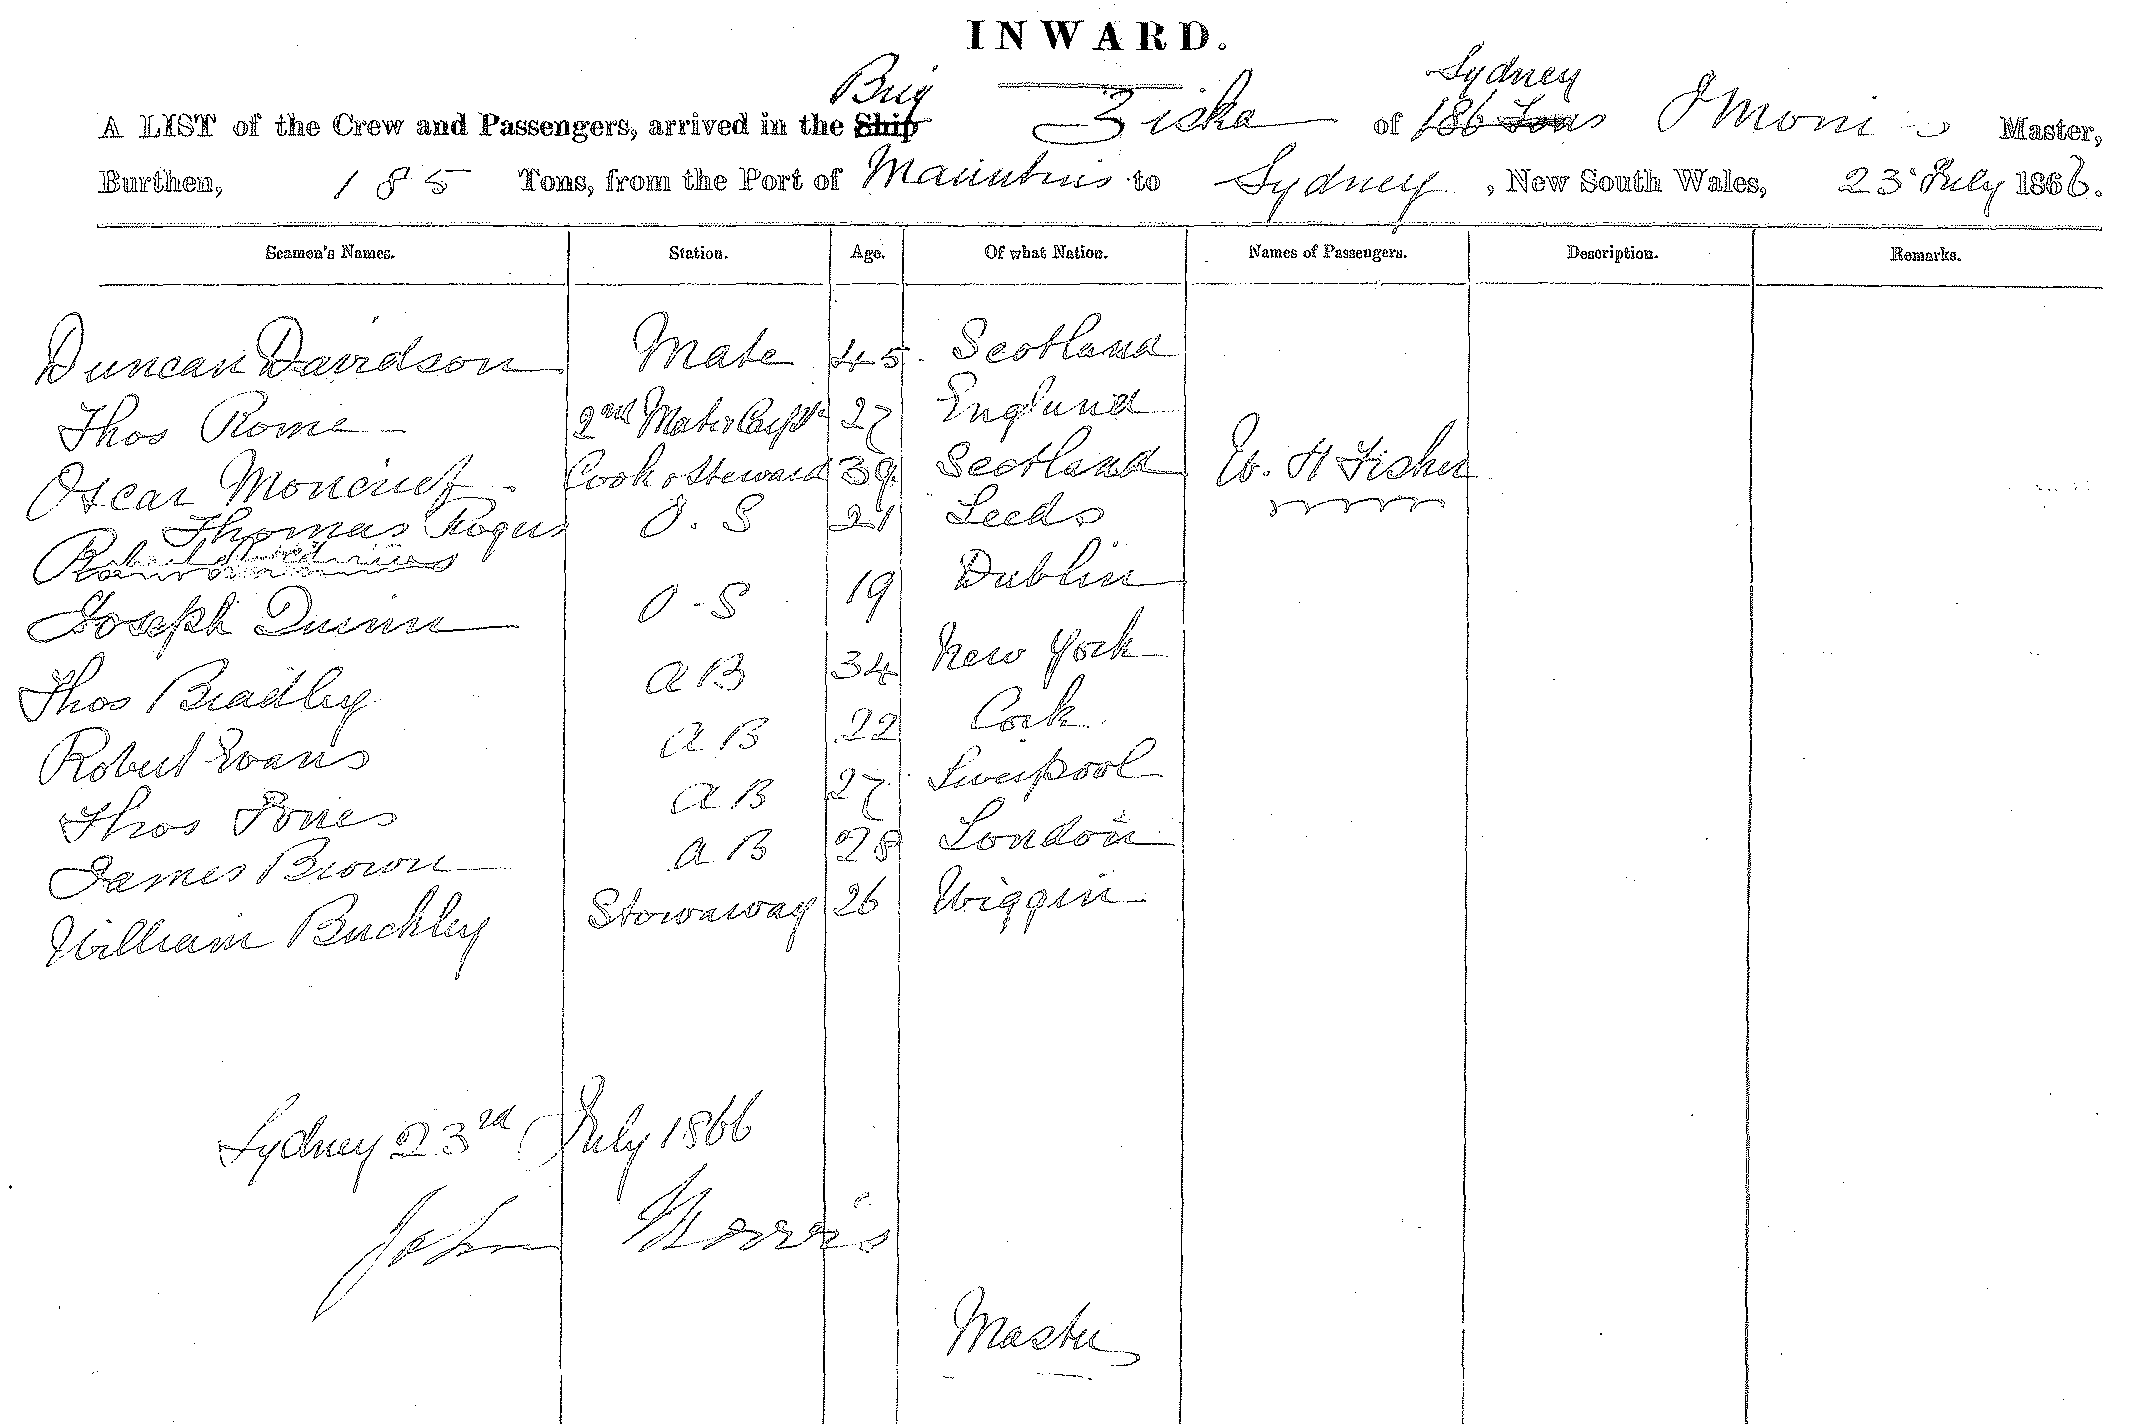 INWARD.
Brig Sydney
A LIST of the Crew and Passengers, arrived in the Ship Ziska of 186 Tons J Morris Master,
Burthen, 185 Tons, from the Port of Mauritius to Sydney, New South Wales, 23 July 1866.
Seamen's Names. Station. Age. Of what Nation. Names of Passengers. Description. Remarks.
Duncan Davidson Mate 45 Scotland
Thos Rome 2nd Mate & 27 England
Oscar Moncrief Cook & Steward 39 Scotland W. H Fisher
Thomas Rogers O.S 21 Leeds
Joseph Quinn O.S 19 Dublin
Thos Bradley AB 34 New York
Robert Evans AB 22 Cork
Thos Jones AB 27 Liverpool
James Brown AB 28 London
William Buckley Stowaway 26 Wiggin
Sydney 23rd July 1866
John Morris
Master